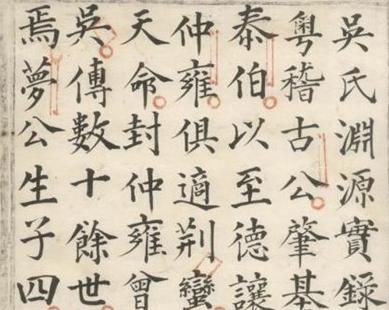 吳氏淵源實錄
粤稽古公肇基
泰伯以至德讓
仲雍俱適荆蠻
天命封仲雍曾
吳傳數十餘世
焉夢公生子四